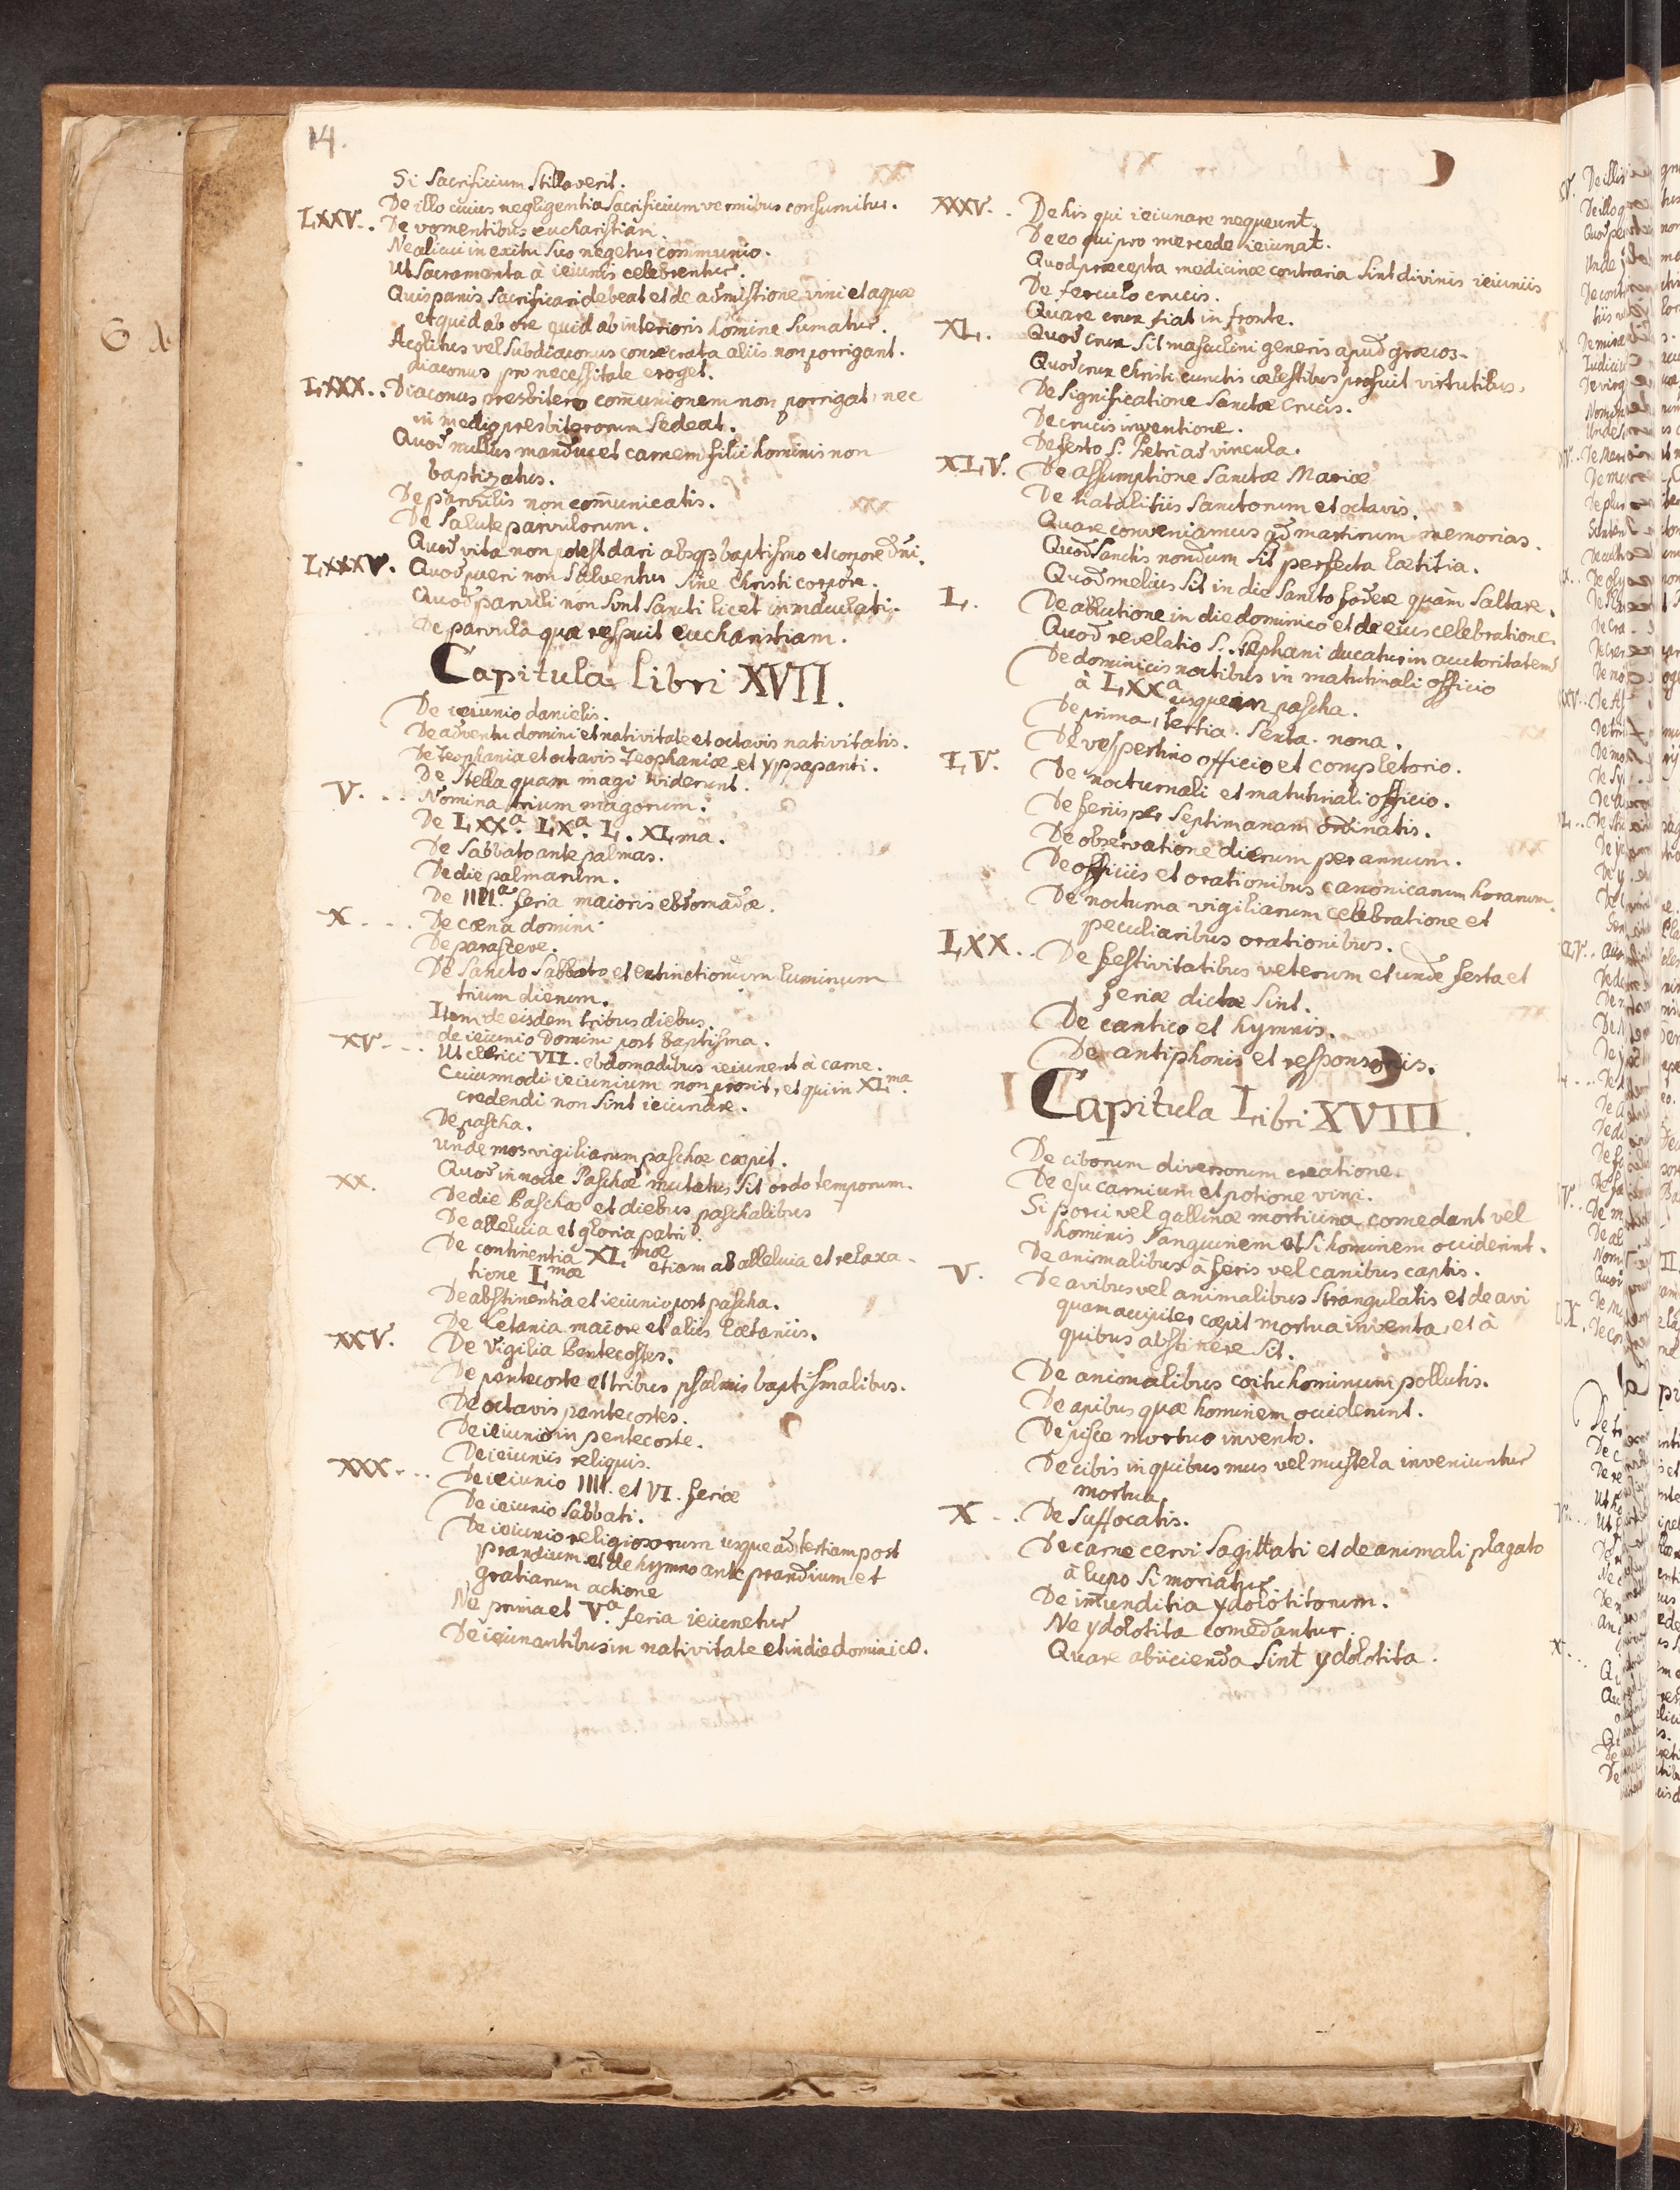 14.
Si Sacrificium Stillaverit.
De illo cuius negligentia Sacrificium vermibus consumitur.
LXXV. . De vomentibus eucharistiam.
Ne alicui in exitu suo negetur communio.
Ut Sacramenta à ieiunis celebrentur.
Quis panis Sacrificari debeat et de admistione vini et aquæ
et quid ab ore quid ab interioris homine Sumatur.
Acolitus vel Subdiaconus consecrata aliis non porrigant.
diaconus pro necessitate eroget.
LXXX. . Diaconus presbitero com̄unionem non porrigat, nec
in medio presbiterorum Sedeat.
Quod nullus manducet carnem filii hominis non
baptizatus.
De parvulis non com̄unicatis.
De Salute parvulorum.
Quod vita non potest dari absq3 baptismo et corpore dn̄i.
LXXXV. Quod pueri non Salventur Sine Christi corpore.
Quod parvuli non Sint Sancti licet immaculati.
De parvula quæ respuit eucharistiam.
Capitula Libri XVII.
De ieiunio danielis.
De adventu domini et nativitate et octavis nativitatis.
De Teophania et octavis Teophaniæ et yppapanti.
De Stella quam magi viderunt.
V. . . . Nomina trium magorum.
De LXXa. LXa. L. XLma.
De Sabbato ante palmas.
De die palmarum.
De IIII.a feria maioris ebdomadæ.
X. . . . De cœna domini
De parasceve.
De Sancto Sabbato et extinctionum luminum
trium dierum.
Item de eisdem tribus diebus.
XV. . . de ieiunio Domini post baptisma.
Ut clerici VII. ebdomadibus ieiunent à carne.
Cuiusmodi ieiunium non prosit, et qui in XLma.
credendi non Sint ieiunare.
De pascha.
Unde mos vigiliarum paschæ cœpit.
XX. Quod in nocte Paschæ mutatus Sit ordo temporum.
De die Paschæ et diebus paschalibus
De alleluia et gloria patri.
De continentia XL.mæ etiam ab alleluia et relaxa-
tione Lmæ
De abstinentia et ieiunio post pascha.
De Letania maiore et aliis Lætaniis.
XXV. De Vigilia Pentecostes.
De pentecoste et tribus psalmis baptismalibus.
De octavis pentecostes.
De ieiunio in pentecoste.
De ieiuniis reliquis.
XXX. . . De ieiunio IIII. et VI. feriæ
De ieiunio Sabbati.
De ieiunio religiosorum usque ad tertiam post
prandium et de hymno ante prandium et
gratiarum actione
Ne prima et V.a feria ieiunetur
De ieiunantibus in nativitate et in die dominico.
XXXV. . De his qui ieiunare nequeunt.
De eo qui pro mercede ieiunat.
Quod præcepta medicinæ contraria Sint divinis ieiuniis
De ferculo crucis.
Quare crux fiat in fronte.
XL. Quod crux Sit masculini generis apud græcos.
Quod crux Christi cunctis cælestibus profuit virtutibus.
De Significatione Sanctæ Crucis.
De crucis inventione.
De festo S. Petri ad vincula.
XLV. De assumptione Sanctæ Mariæ
De natalitiis Sanctorum et octavis.
Quare conveniamus ad martirum memorias.
Quod Sanctis nondum Sit perfecta lætitia.
Quod melius Sit in die Sancto fodere quàm Saltare.
L. De ablutione in die dominico et de eius celebratione.
Quod revelatio S. Stephani ducatur in auctoritatem
De dominicis noctibus in matutinali officio
à LXXa usque in pascha.
De prima, tertia. Sexta. nona.
De vespertino officio et completorio.
LV. De nocturnali et matutinali officio.
De feriis per Septimanam ordinatis.
De observatione dierum per annum.
De officiis et orationibus canonicarum horarum.
De nocturna vigiliarum celebratione et
peculiaribus orationibus.
LXX. . De festivitatibus veterum et unde festa et
feriæ dictæ Sint.
De cantico et hymnis.
De antiphonis et responsoriis.
Capitula Libri XVIII.
De ciborum diversorum creatione.
De esu carnium et potione vini.
Si porci vel gallinæ morticina comedant vel
hominis Sanguinem et Si hominem occiderint.
De animalibus à feris vel canibus captis.
V. De avibus vel animalibus Strangulatis et de avi
quam accipiter cœpit mortua inventa, et à
quibus abstinere Sit.
De animalibus coitu hominum pollutis.
De apibus quæ hominem occiderint.
De pisce mortuo invento.
De cibis in quibus mus vel mustela inveniuntur
mortua
X. . . De Suffocatis.
De carne cervi Sagittati et de animali plagato
à lupo Si moriatur
De im̄unditia ydolotitorum.
Ne ydolotita comedantur.
Quare abiicienda Sint ydolotita.